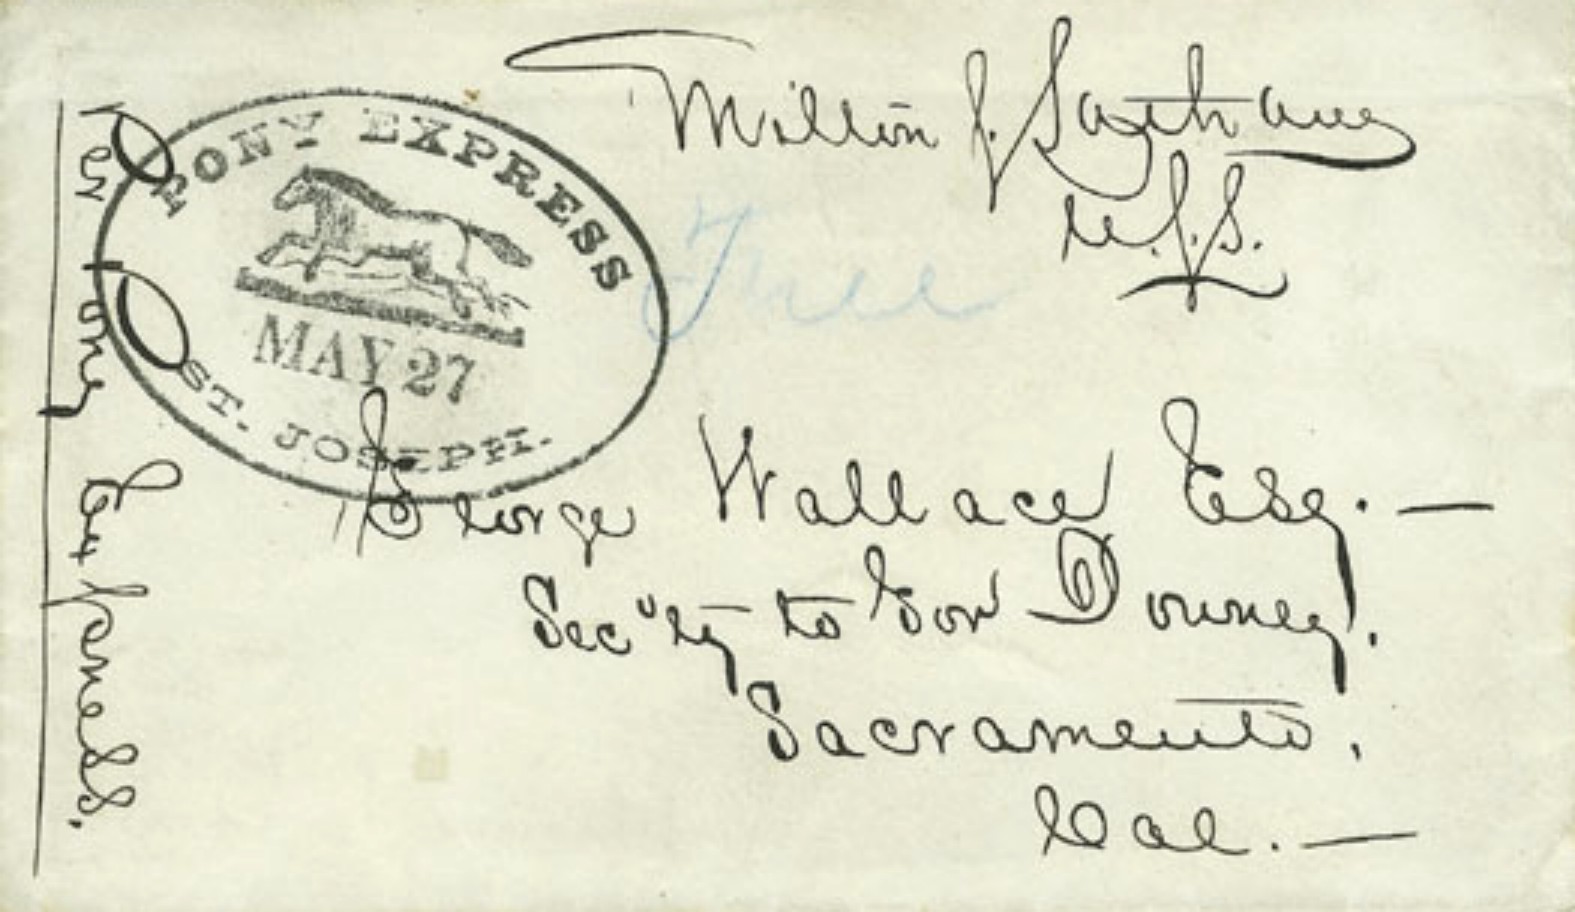 Milton S. Latham
U.S.S.
Free
PONY EXPRESS
MAY 27
ST. JOSEPH.
Per Pony Express.
George Wallace Esq. —
Sec'ty to Gov Downey.
Sacramento.
Cal. —